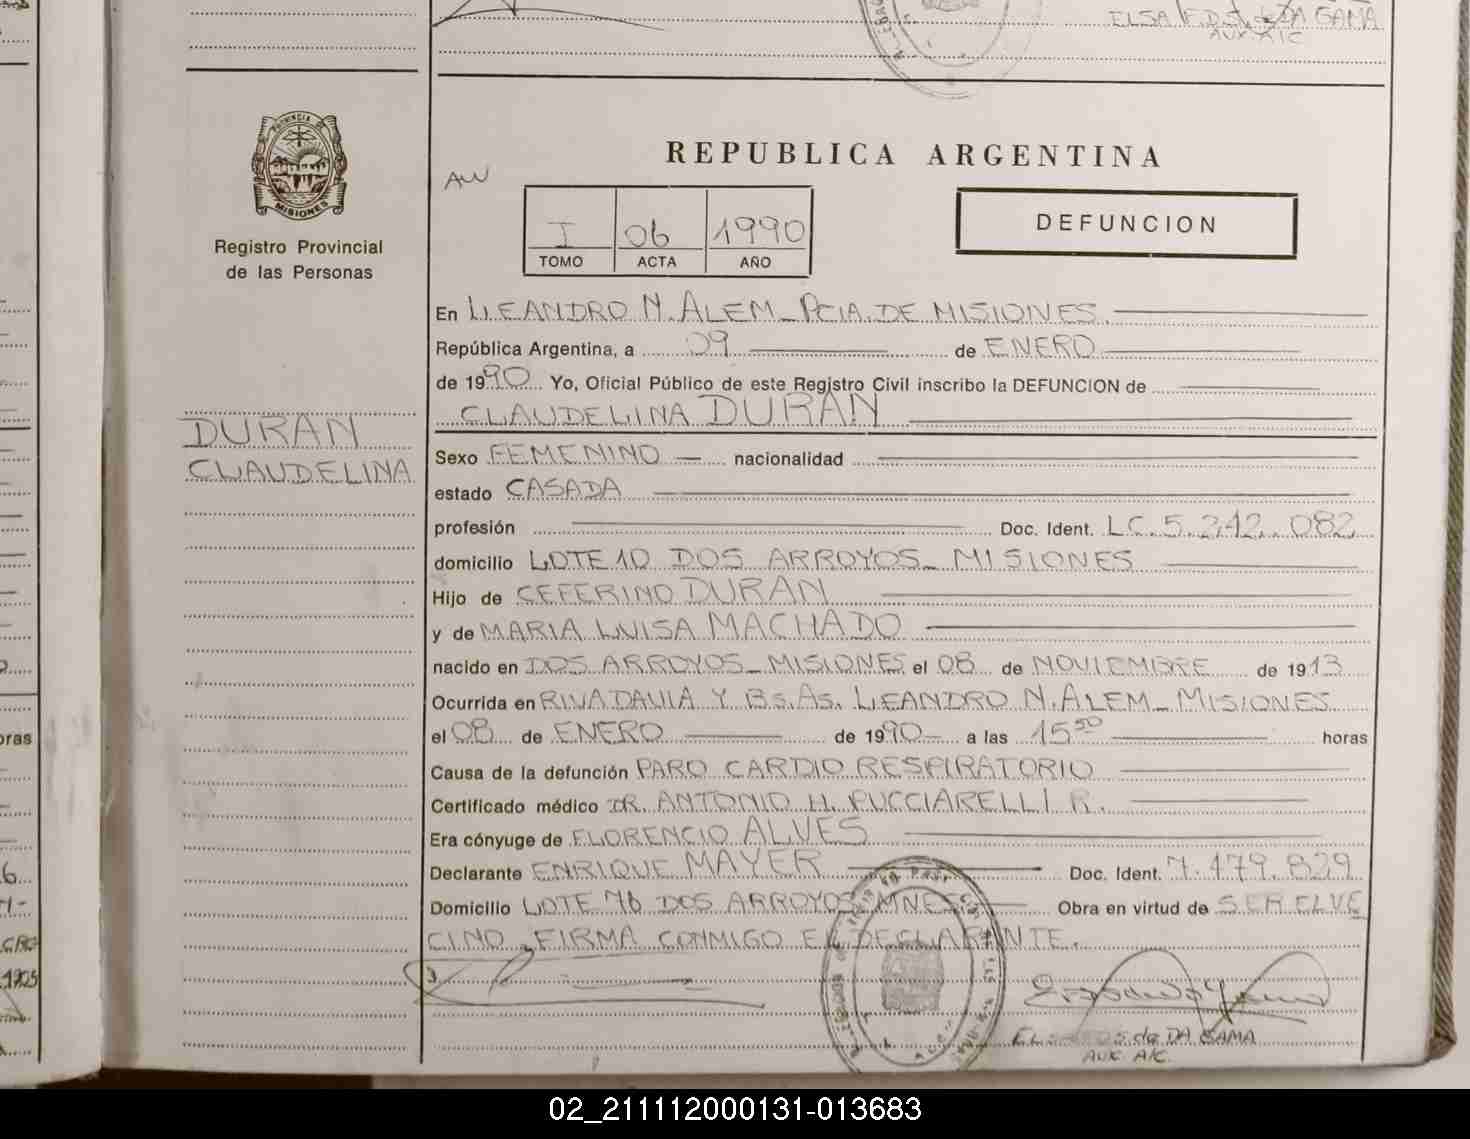 ELSA F.D.S. de DA GAMA
AUX. A/C
PROVINCIA DE
MISIONES
Registro Provincial
de las Personas
REPUBLICA ARGENTINA
AW
I 06 1990
TOMO ACTA AÑO
DEFUNCION
En LEANDRO N. ALEM - PCIA. DE MISIONES.
República Argentina, a 09 de ENERO
de 1990 Yo, Oficial Público de este Registro Civil inscribo la DEFUNCION de
CLAUDELINA DURAN
DURAN
CLAUDELINA
Sexo FEMENINO nacionalidad
estado CASADA
profesión Doc. Ident. LC. 5.242.082
domicilio LOTE 10 DOS ARROYOS - MISIONES
Hijo de CEFERINO DURAN
y de MARIA LUISA MACHADO
nacido en DOS ARROYOS - MISIONES el 08 de NOVIEMBRE de 1913
Ocurrida en RIVADAVIA Y Bs.As. LEANDRO N. ALEM - MISIONES
el 08 de ENERO de 1990 a las 15 50 horas
Causa de la defunción PARO CARDIO RESPIRATORIO
Certificado médico DR. ANTONIO H. PUCCIARELLI R.
Era cónyuge de FLORENCIO ALVES
Declarante ENRIQUE MAYER Doc. Ident. 7.479.829
Domicilio LOTE 76 DOS ARROYOS MNES Obra en virtud de SER EL VE
CINO, FIRMA CONMIGO EL DECLARANTE.
de DA GAMA
AUX. A/C.
oras
1925
02_211112000131-013683